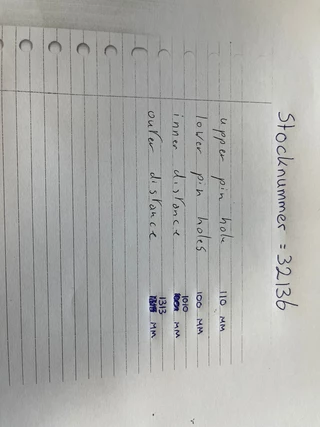 Stocknummer = 32136
upper pin hole 110 MM
lover pin holes 100 MM
inner distance 1010 MM
outer distance 1313 MM